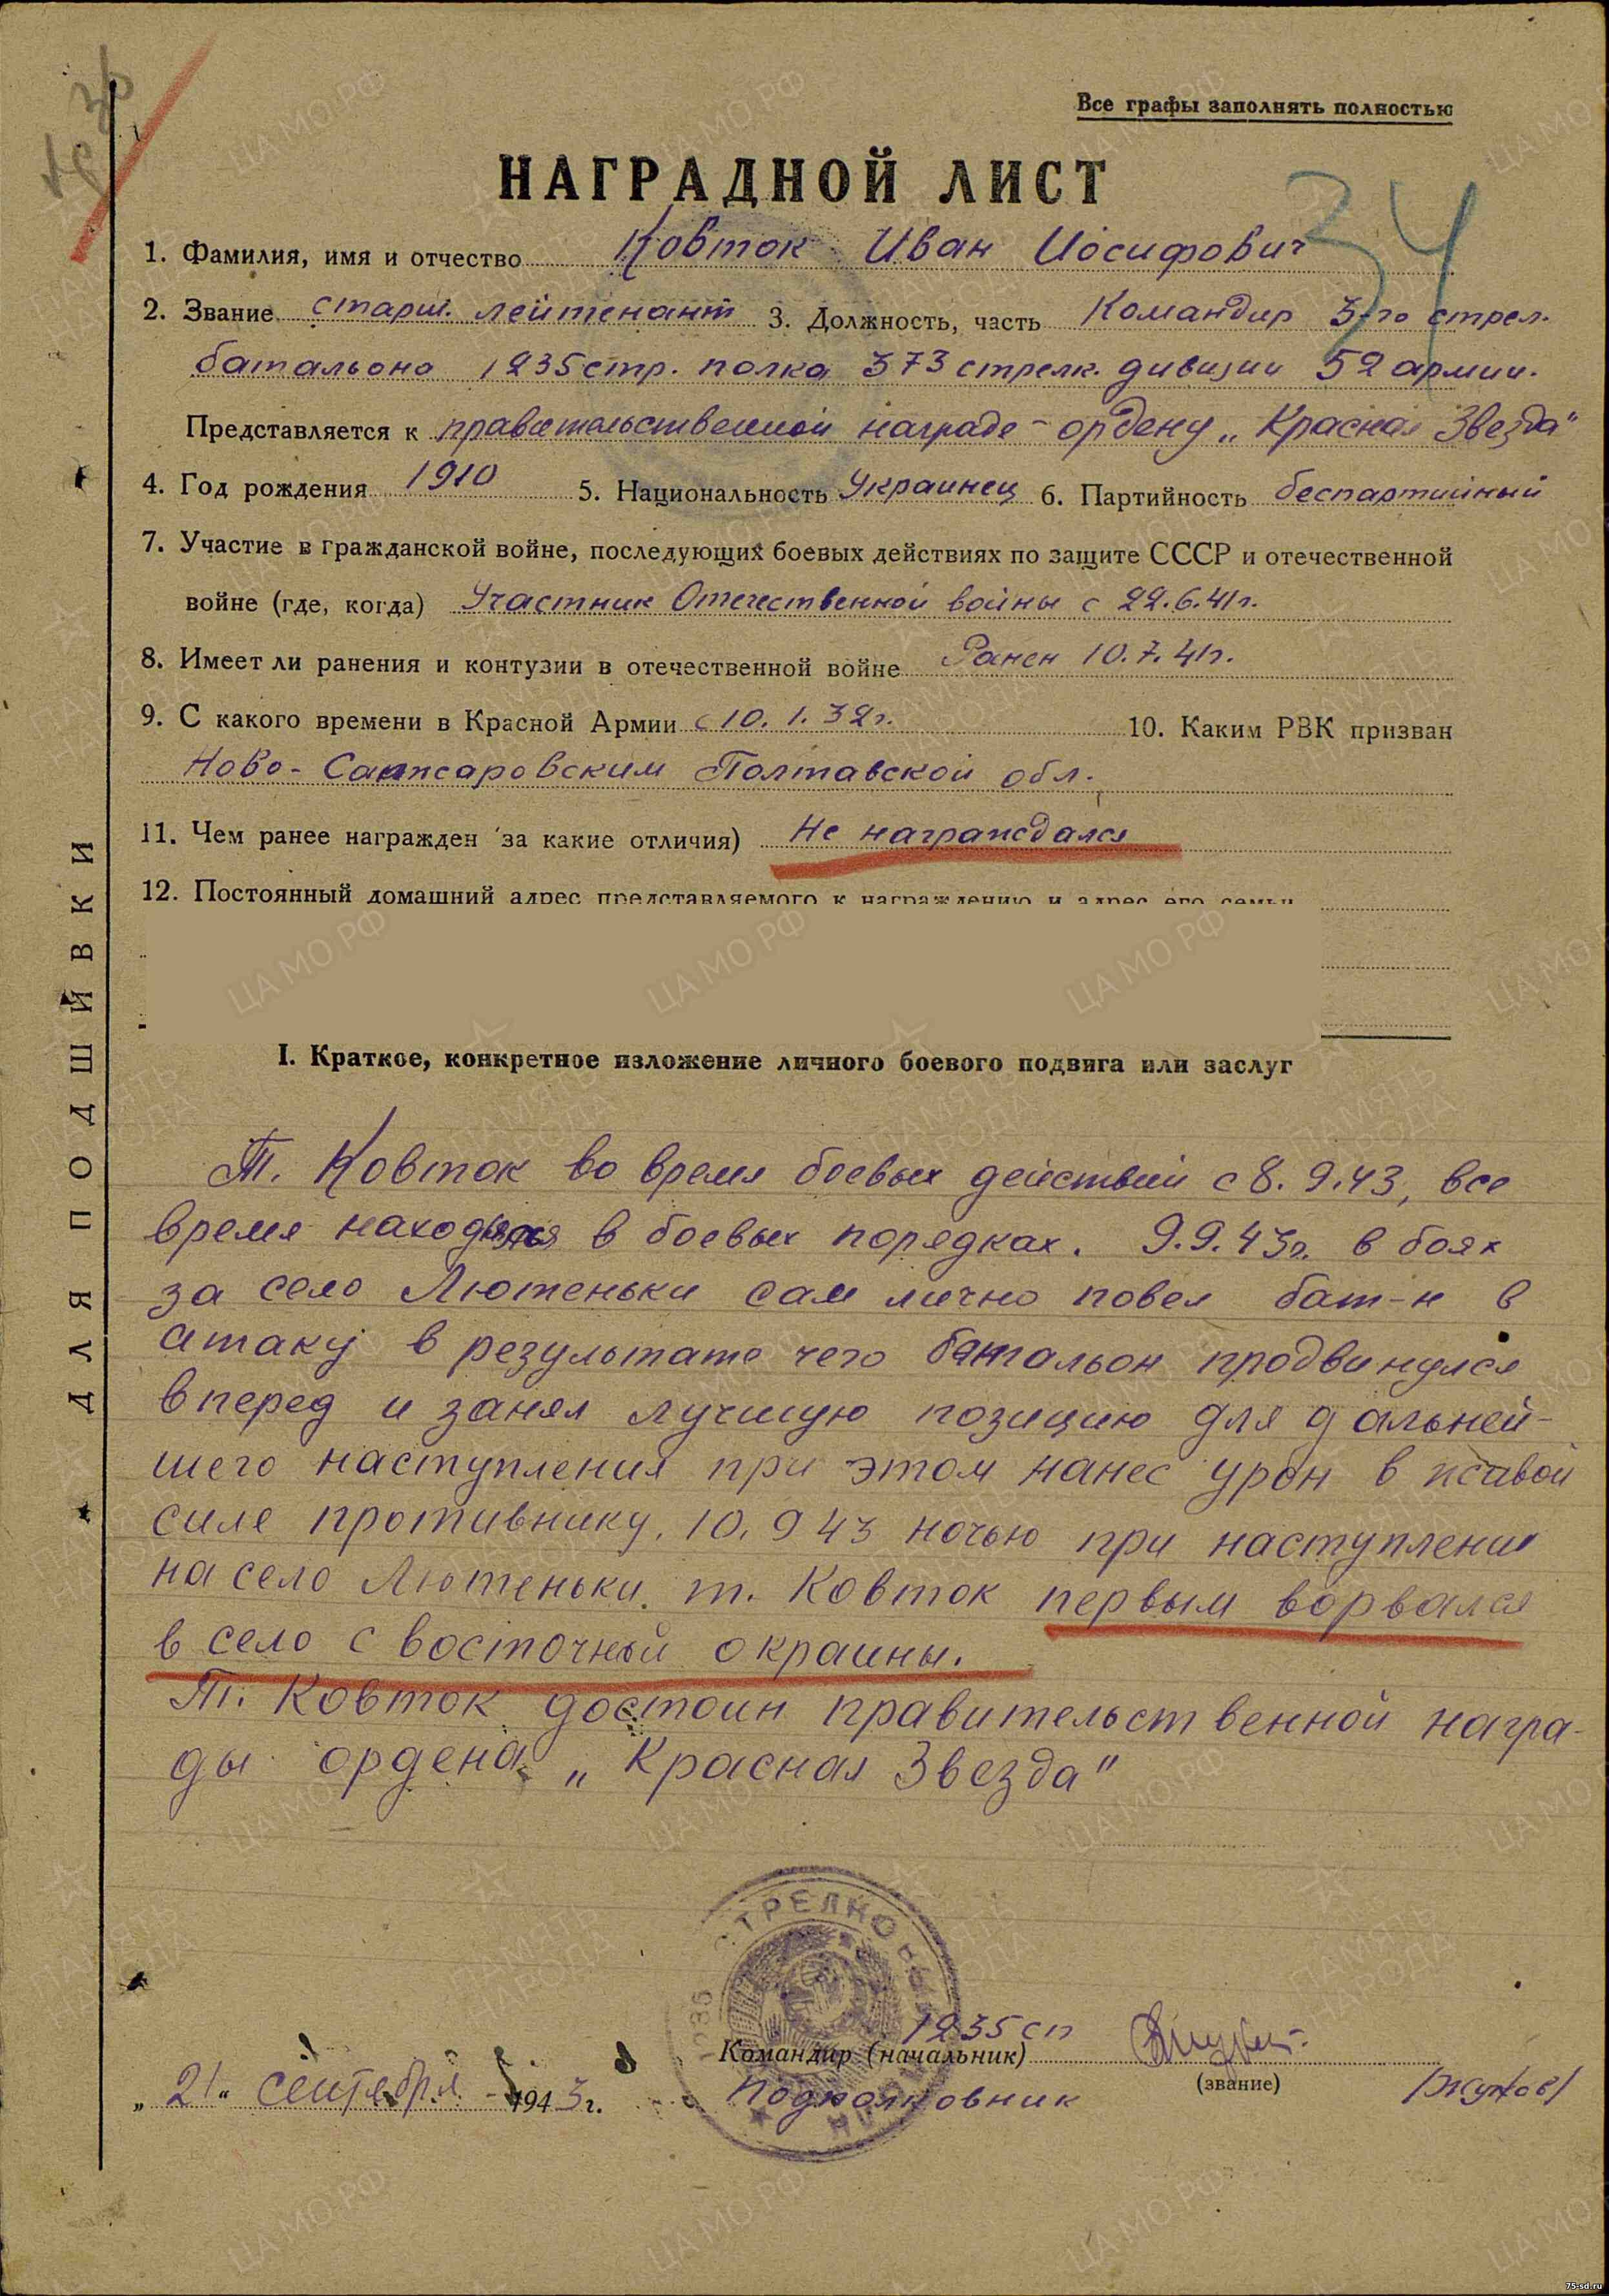 Все графы заполнять полностью
НАГРАДНОЙ ЛИСТ
34
1. Фамилия, имя и отчество Ковток Иван Иосифович
2. Звание старш. лейтенант 3. Должность, часть Командир 3-го стрел.
батальона 1235 стр. полка 373 стрелк. дивизии 52 армии.
Представляется к правительственной награде - ордену „Красная Звезда"
4. Год рождения 1910 5. Национальность Украинец 6. Партийность беспартийный
7. Участие в гражданской войне, последующих боевых действиях по защите СССР и отечественной
войне (где, когда) Участник Отечественной войны с 22.6.41г.
8. Имеет ли ранения и контузии в отечественной войне Ранен 10.7.41г.
9. С какого времени в Красной Армии с 10.1.32г. 10. Каким РВК призван
Ново-Санжаровским Полтавской обл.
11. Чем ранее награжден за какие отличия) Не награждался
12. Постоянный домашний адрес представляемого к награждению и адрес его семьи
ДЛЯ ПОДШИВКИ
I. Краткое, конкретное изложение личного боевого подвига или заслуг
Т. Ковток во время боевых действий с 8.9.43, все
время находился в боевых порядках. 9.9.43г. в боях
за село Лютеньки сам лично повел бат-н в
атаку в результате чего батальон продвинулся
вперед и занял лучшую позицию для дальней-
шего наступления при этом нанес урон в живой
силе противнику. 10.9 43 ночью при наступлении
на село Лютеньки. т. Ковток первым ворвался
в село с восточной окраины.
Т. Ковток достоин правительственной награ-
ды ордена „Красная Звезда"
1235 сп
Командир (начальник)
(звание)
„21" сентября 1943г. Подполковник /Жуков/
ЦА МО РФ
ПАМЯТЬ НАРОДА
75-sd.ru